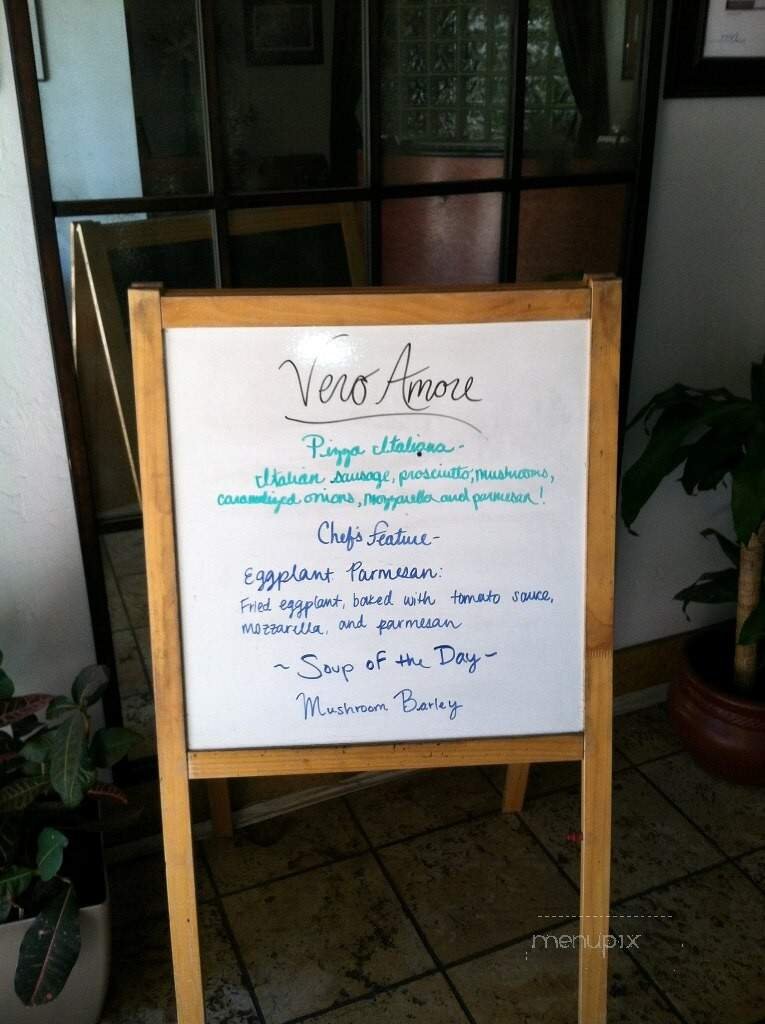 Vero Amore
Pizza Italiana -
Italian sausage, prosciutto, mushrooms,
caramelized onions, mozzarella and parmesan!
Chef's Feature -
Eggplant Parmesan:
Fried eggplant, baked with tomato sauce,
mozzarella, and parmesan
~ Soup of the Day ~
Mushroom Barley
menupix